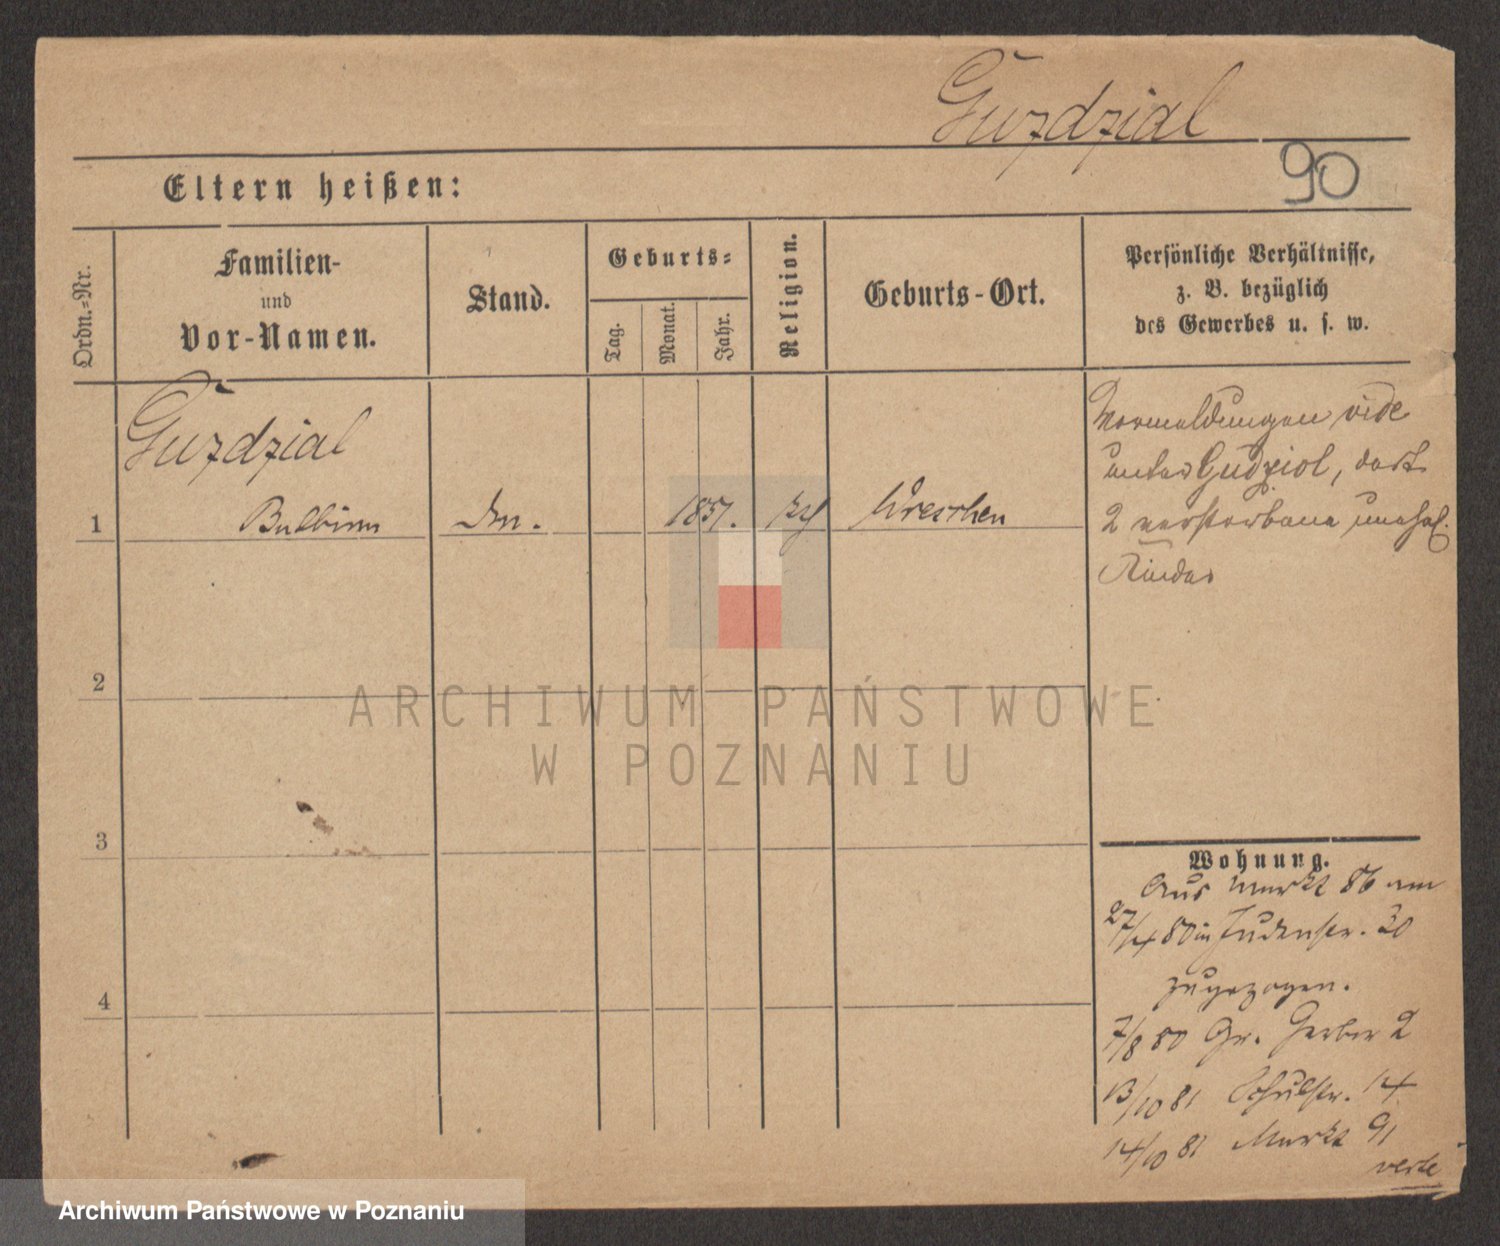 Guzdzial
90
Eltern heißen:
Ordn.-Nr.
Familien-
und
Vor-Namen.
Stand.
Geburts-
Tag.
Monat.
Jahr.
Religion.
Geburts-Ort.
Persönliche Verhältnisse,
z. B. bezüglich
des Gewerbes u. s. w.
Guzdzial
1
Balbina
1857.
Wreschen
Vormeldungen vide
unter Gudziol, dort
2 verstorbene unehel.
Kinder
2
3
4
Wohnung.
Aus Markt 86 am
27/4 80 in Judenstr. 30
zugezogen.
7/8 80 Gr. Gerber 2
13/10 81 Schulstr. 14
14/10 81 Markt 91
verte
ARCHIWUM PAŃSTWOWE
W POZNANIU
Archiwum Państwowe w Poznaniu